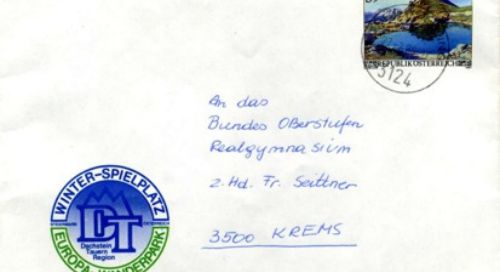 REPUBLIK ÖSTERREICH
3124
An das
Bundes Oberstufen
Realgymnasium
z. Hd. Fr. Seittner
3500 KREMS
WINTER-SPIELPLATZ
DT
Dachstein
Tauern
Region
EUROPA-WANDERPARK